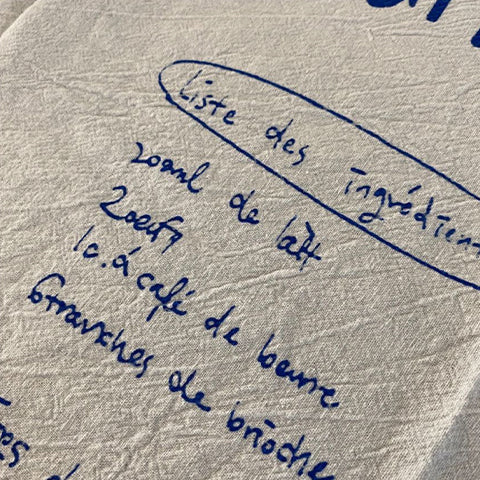 Liste des ingrédient
200ml de lait
2oeufs
1c.à café de beurre
6tranches de brioche